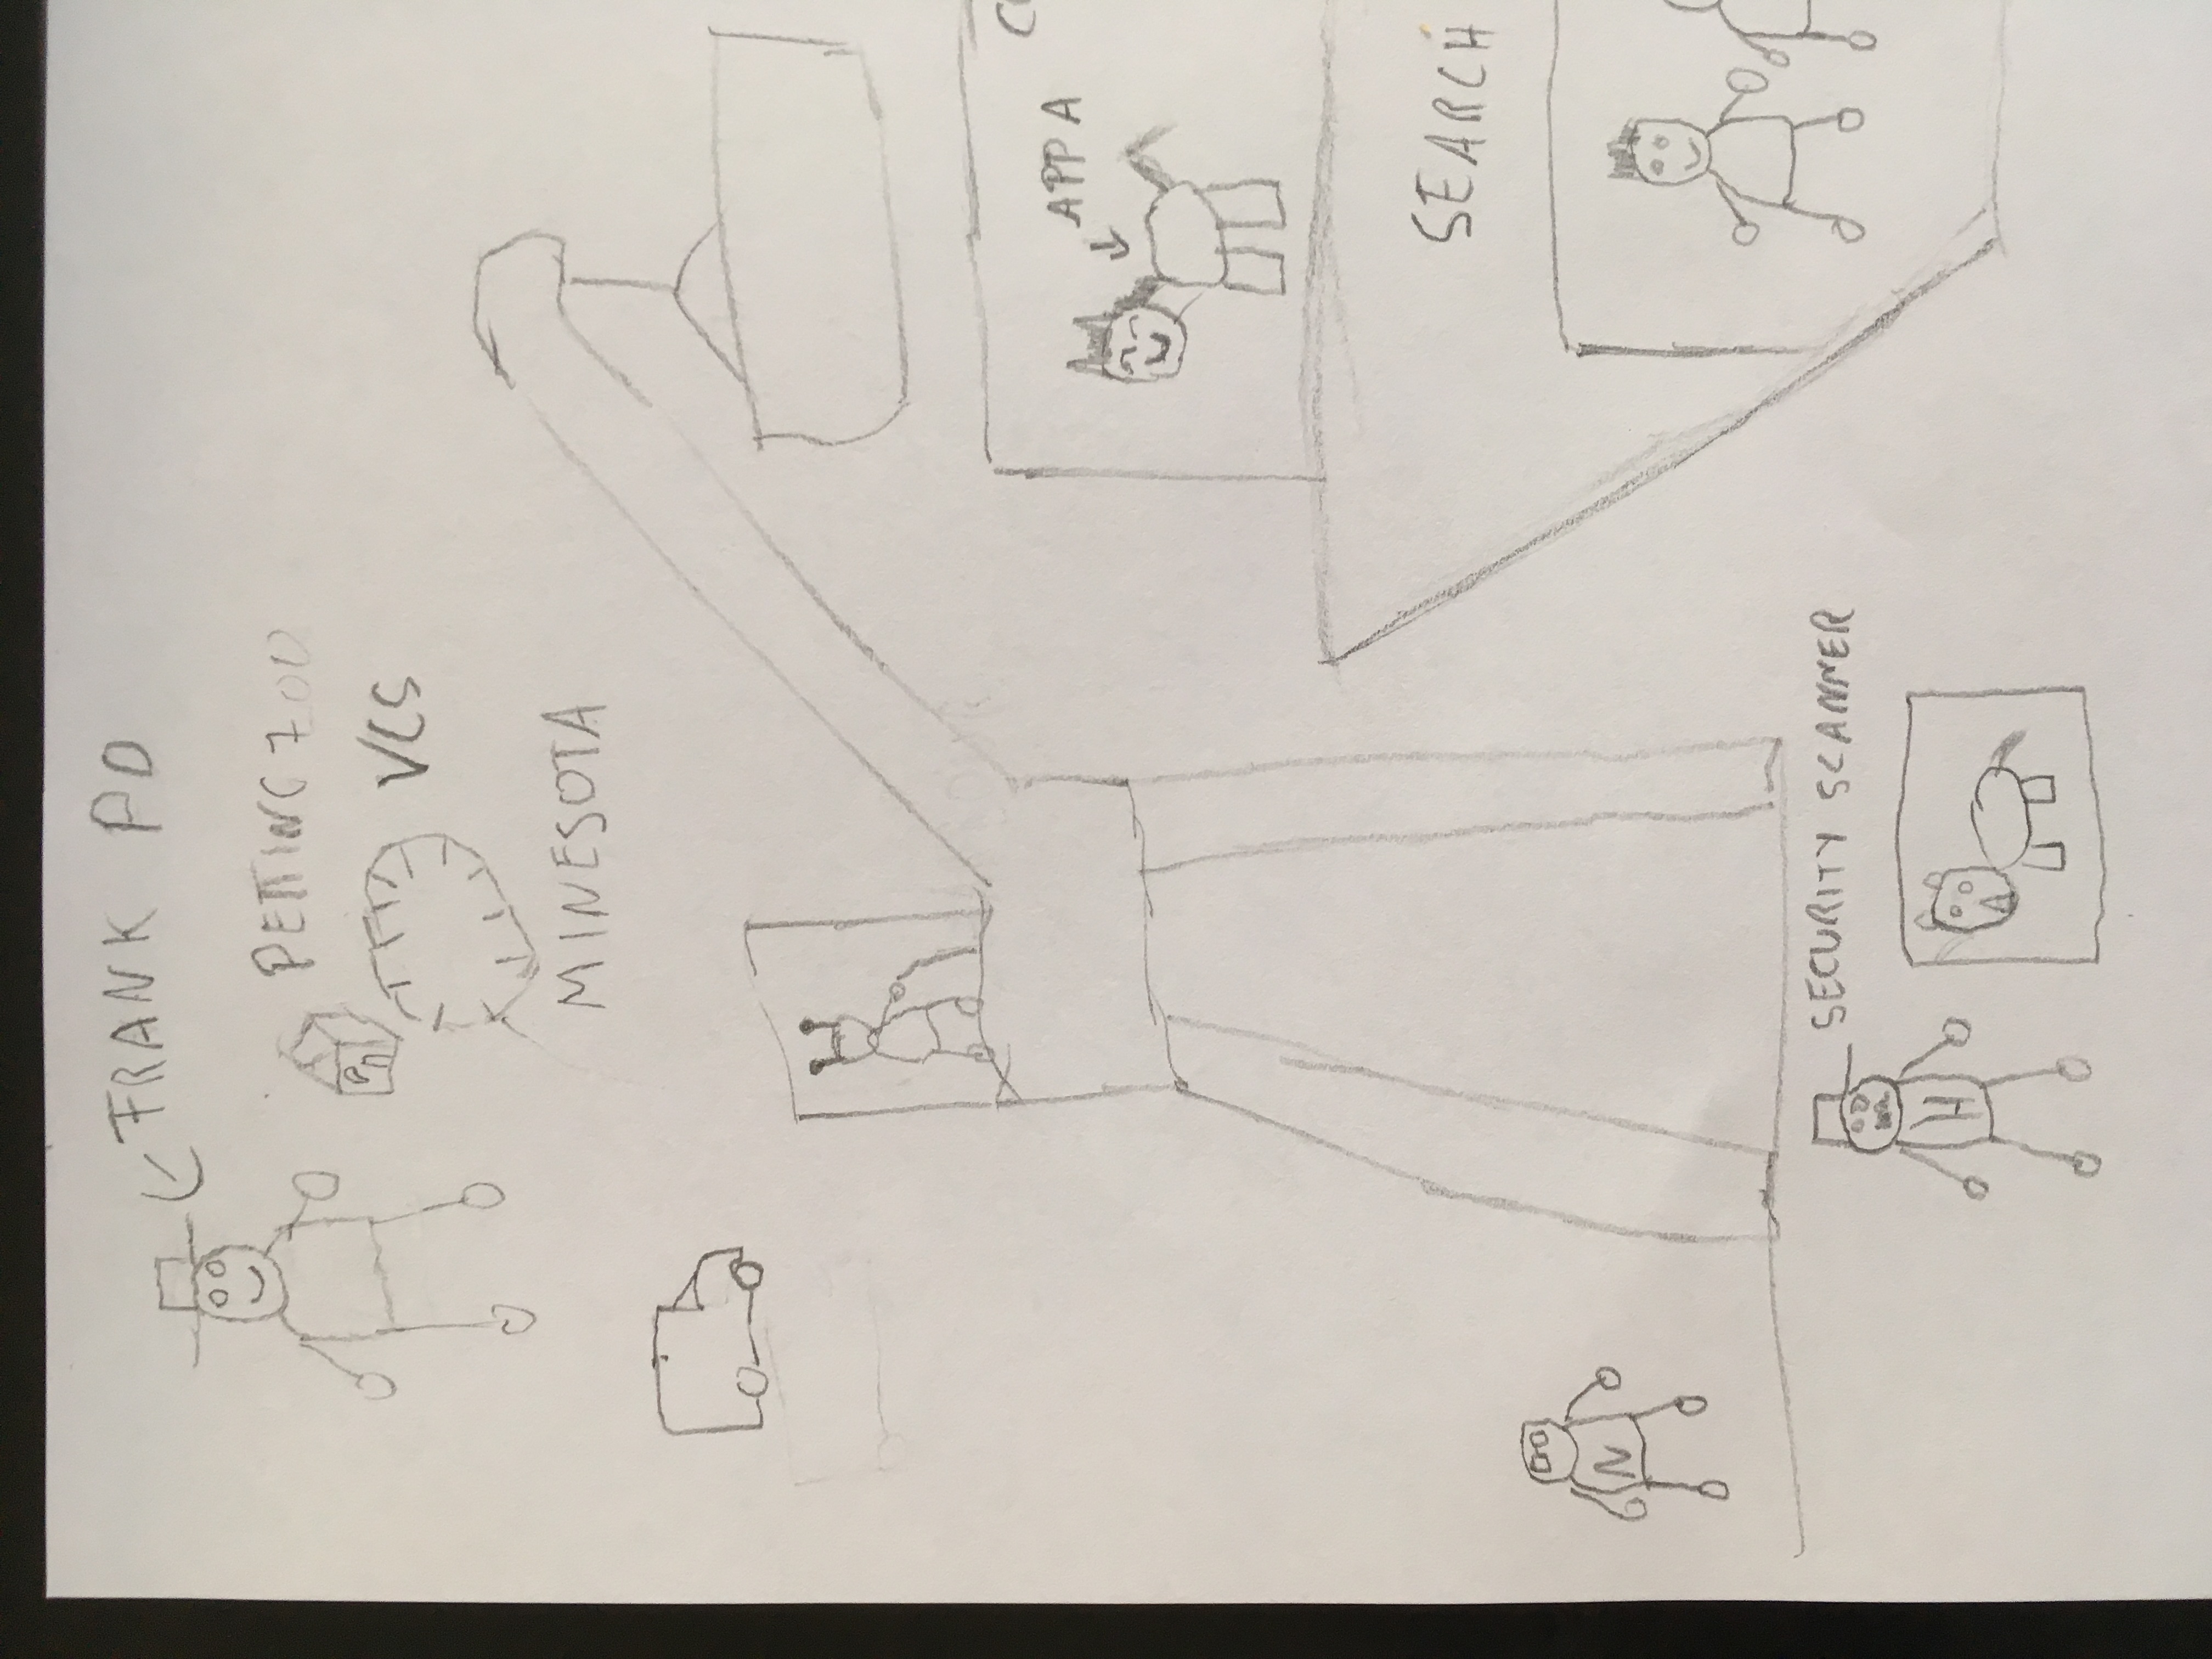 FRANK PO
PETTING ZOO
VCS
MINESOTA
APP A
SEARCH
N
SECURITY SCANNER
H